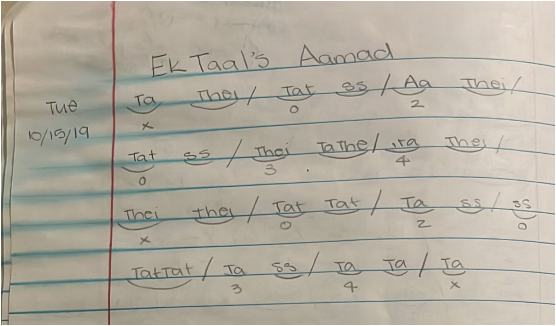 Ek Taal's Aamad
Tue
10/15/19
Ta Thei / Tat ss / Aa Thei /
x 0 2
Tat ss / Thei TaThe / ,ta Thei /
0 3 4
Thei thei / Tat Tat / Ta ss / ss
x 0 2 0
TatTat / Ta ss / Ta Ta / Ta
3 4 x